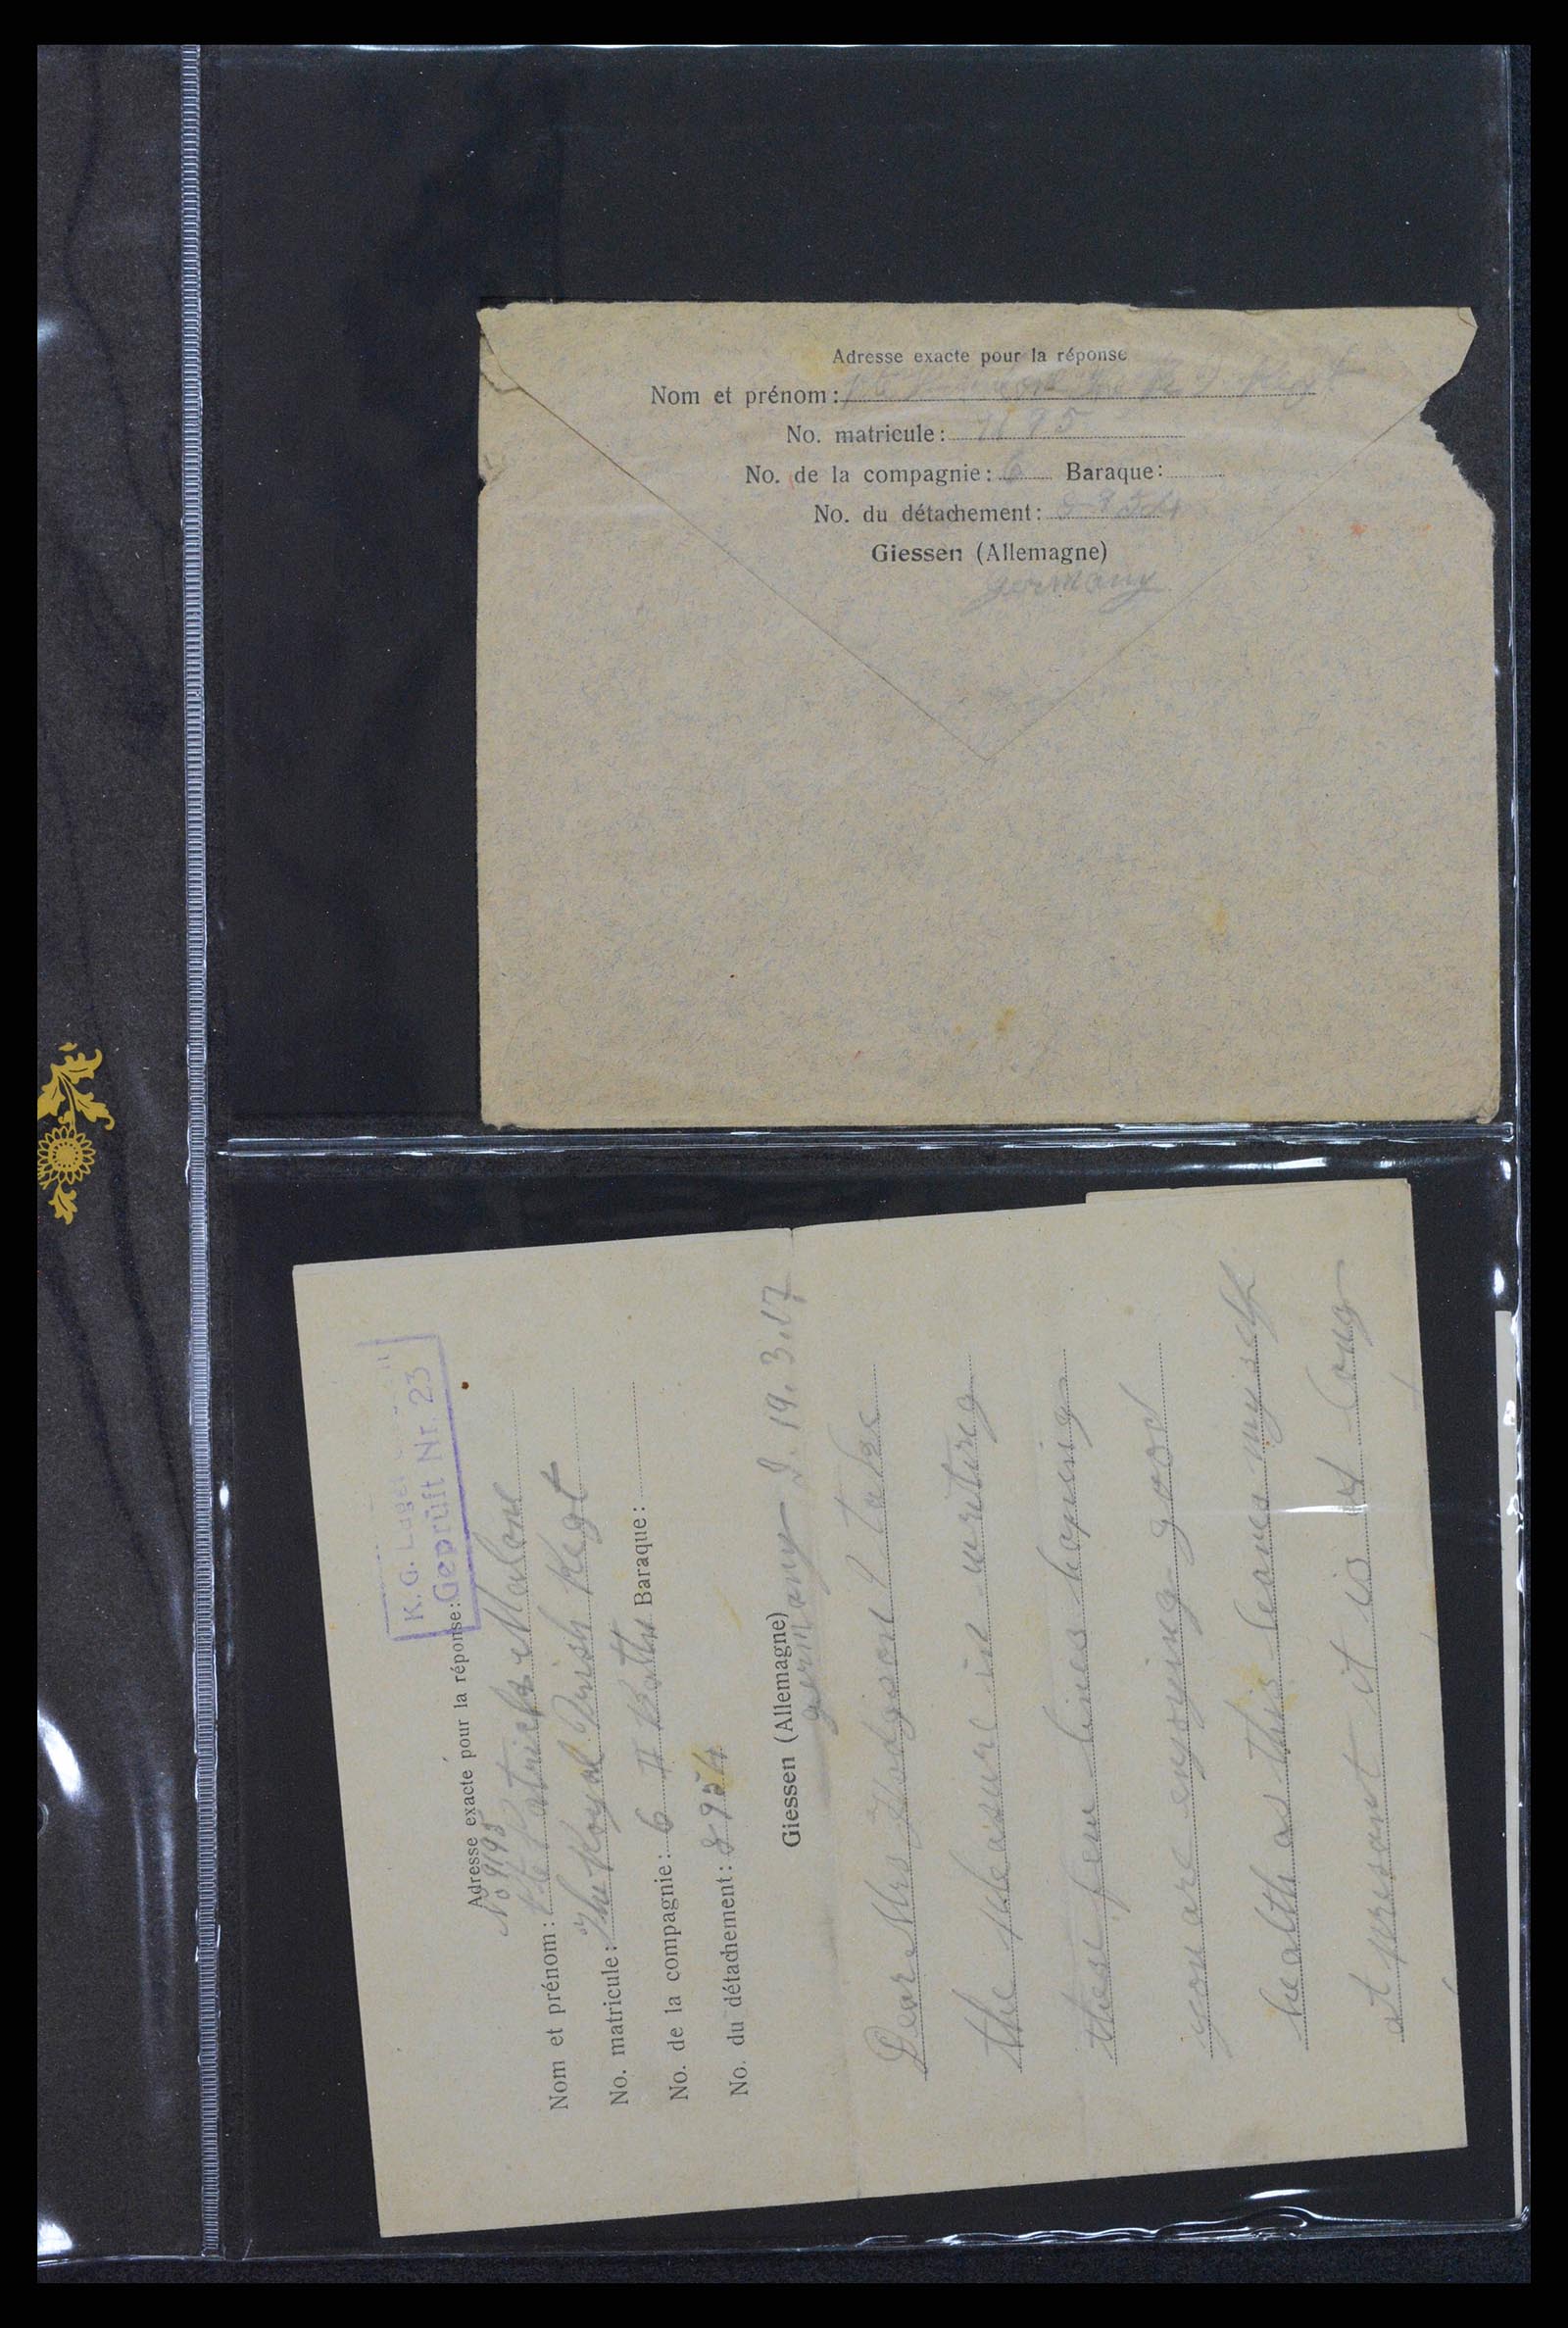 Adresse exacte pour la réponse
Nom et prénom: Pte Regt
No. matricule: 9195
No. de la compagnie: 6 Baraque:
No. du détachement: 8954
Giessen (Allemagne)
Germany
K. G. Lager
Geprüft Nr. 23
Adresse exacte pour la réponse:
No 9195
Nom et prénom: Pte Patrick Malone
No. matricule: The Royal Irish Regt
No. de la compagnie: 6 Baraque:
No. du détachement: 8954
Giessen (Allemagne)
Germany 19.3.17
Dear Mrs Hodgson I take
the pleasure in writing
these few lines hopeing
you are enjoying good
health as this leaves my self
at presant it is a long